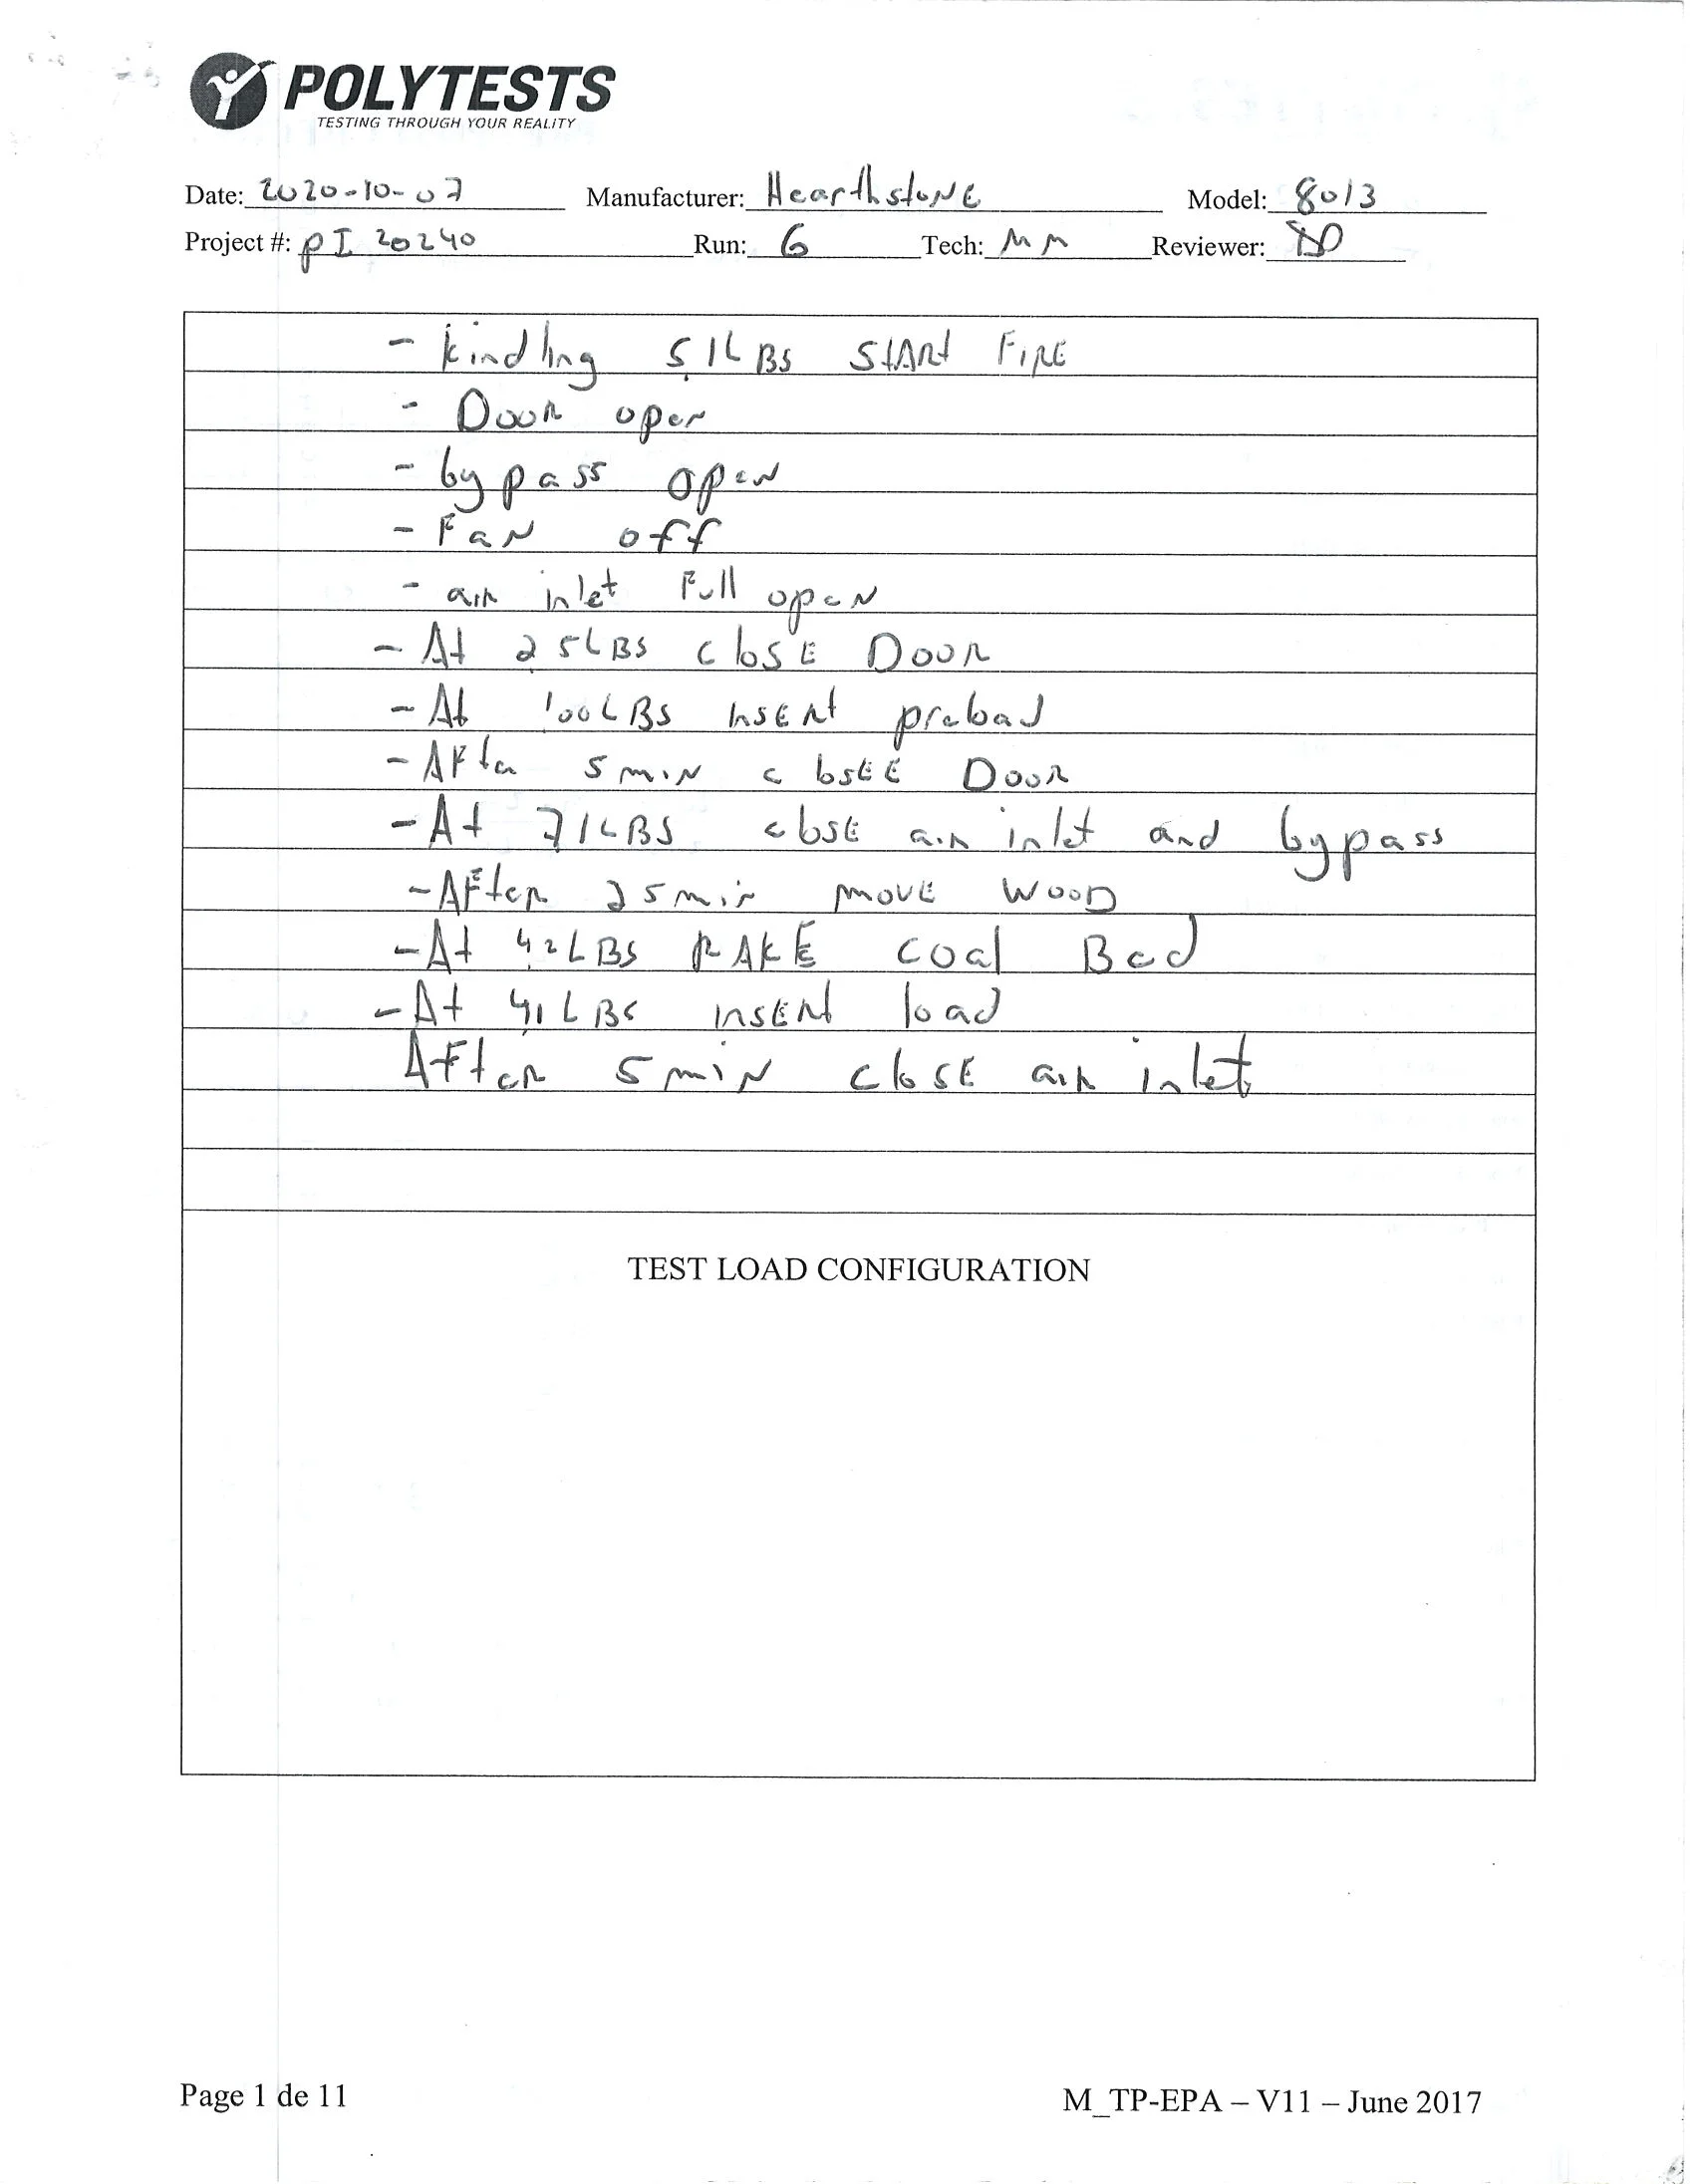 POLYTESTS
TESTING THROUGH YOUR REALITY
Date: 2020-10-07 Manufacturer: HearthstoNE Model: 8013
Project #: pI 20240 Run: 6 Tech: MM Reviewer:
- kindling 5.1LBS StARt FIRE
- DooR open
- bypass opeN
- FaN off
- aiR inlet Full opeN
- At 25LBS closE DooR
- At 100LBS InsERt preload
- AFter 5 miN closEE DooR
- At 71LBS closE aiR inlet and bypass
- AFteR 25 min movE WooD
- At 4.2LBS RAKE coal Bed
- At 4.1LBS insERt load
AFteR 5 miN closE aiR inlet
TEST LOAD CONFIGURATION
Page 1 de 11 M_TP-EPA – V11 – June 2017